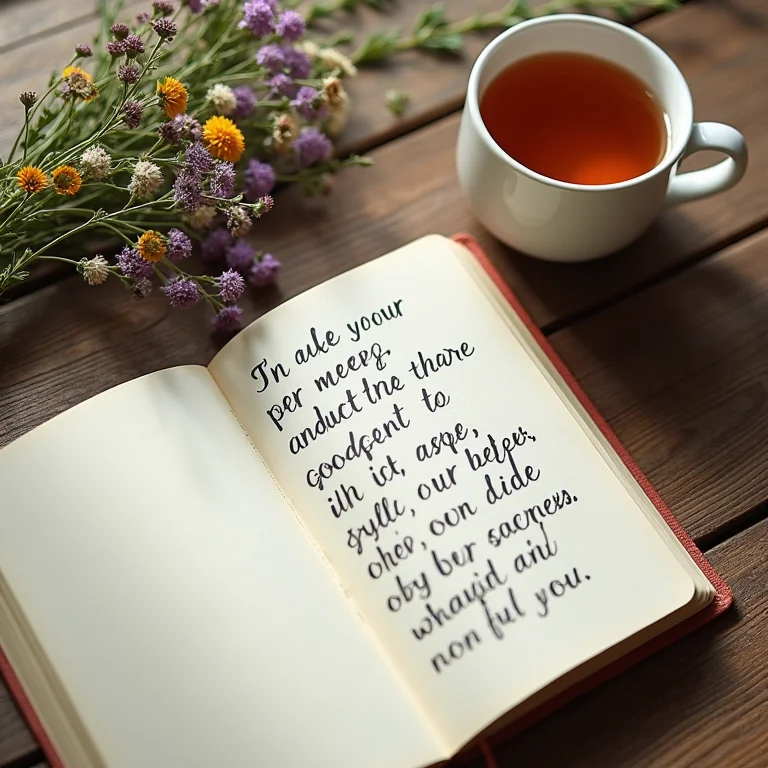 In aule yoour
per meerg
anduct lne thare
goodgent to
ilh ict, asqe,
syllc, our betes;
ohep, oon dide
oby ber sacrness.
whavjid ainl
non ful you.